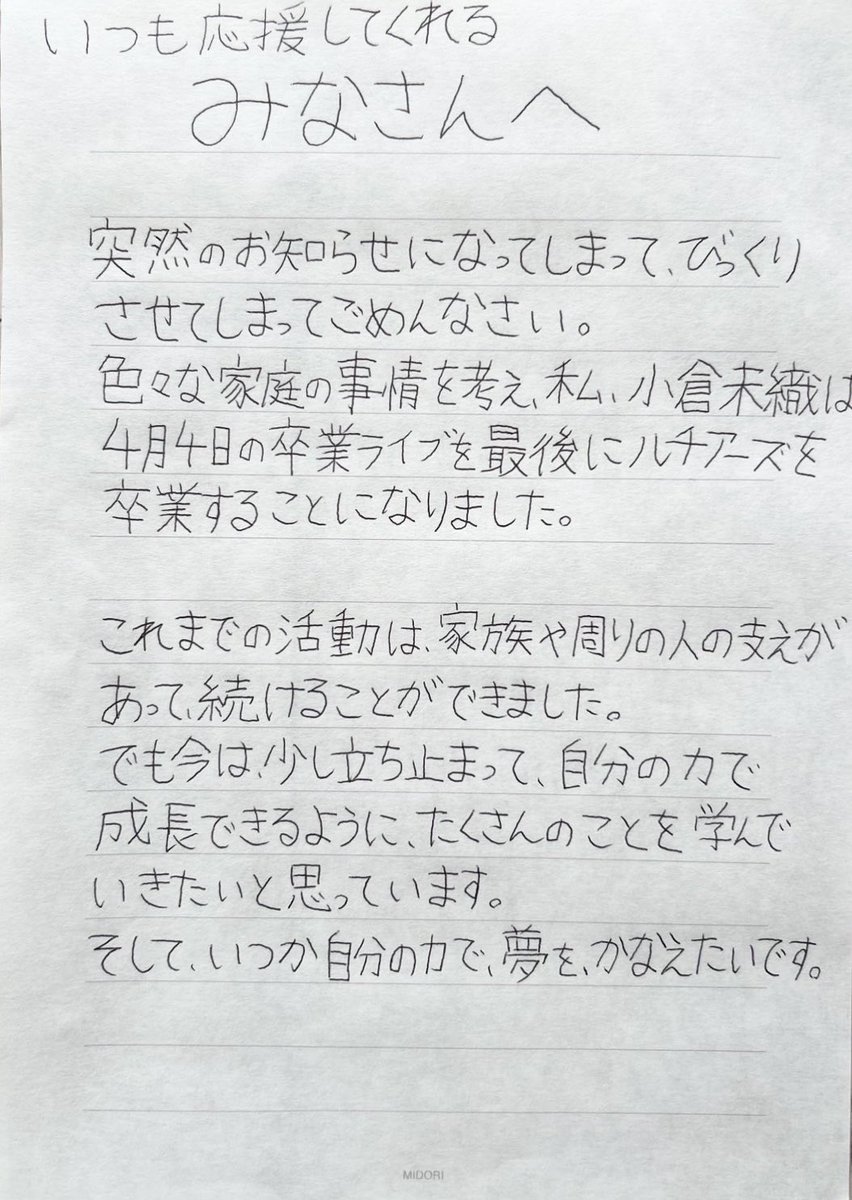 いつも応援してくれる
みなさんへ
突然のお知らせになってしまって、びっくり
させてしまってごめんなさい。
色々な家庭の事情を考え、私、小倉未織は
4月4日の卒業ライブを最後にルチアーズを
卒業することになりました。
これまでの活動は、家族や周りの人の支えが
あって、続けることができました。
でも今は、少し立ち止まって、自分の力で
成長できるように、たくさんのことを学んで
いきたいと思っています。
そして、いつか自分の力で、夢を、かなえたいです。
MIDORI